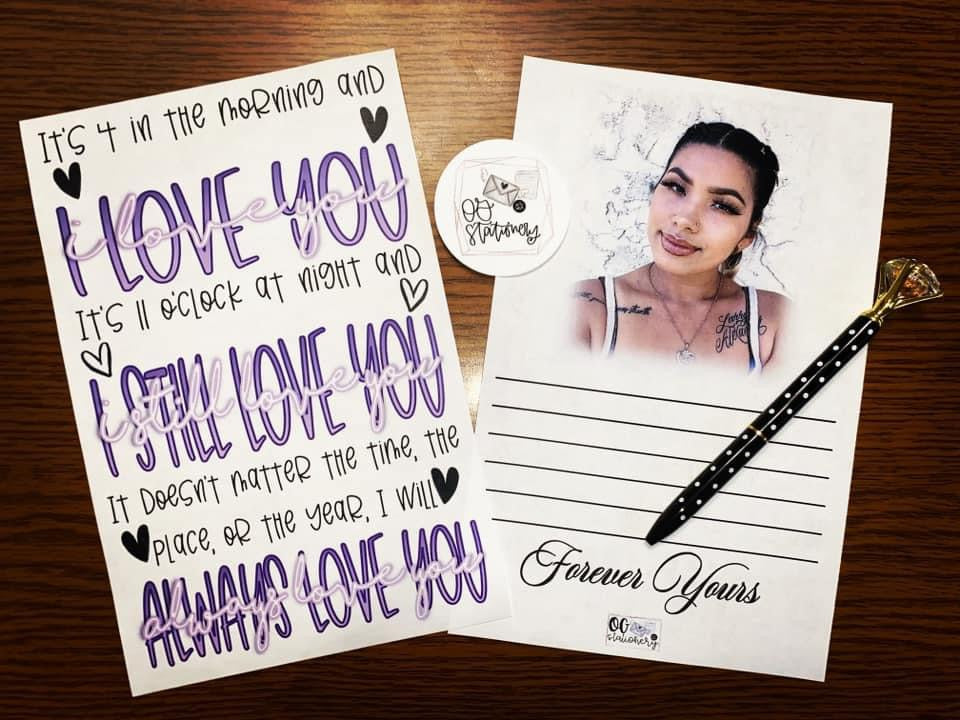 It's 4 in the morning and
I LOVE YOU
i love you
It's 11 o'clock at night and
I STILL LOVE YOU
i still love you
It doesn't matter the time, the
place, or the year, I will
ALWAYS LOVE YOU
always love you
OG
stationery
Forever Yours
OG
stationery